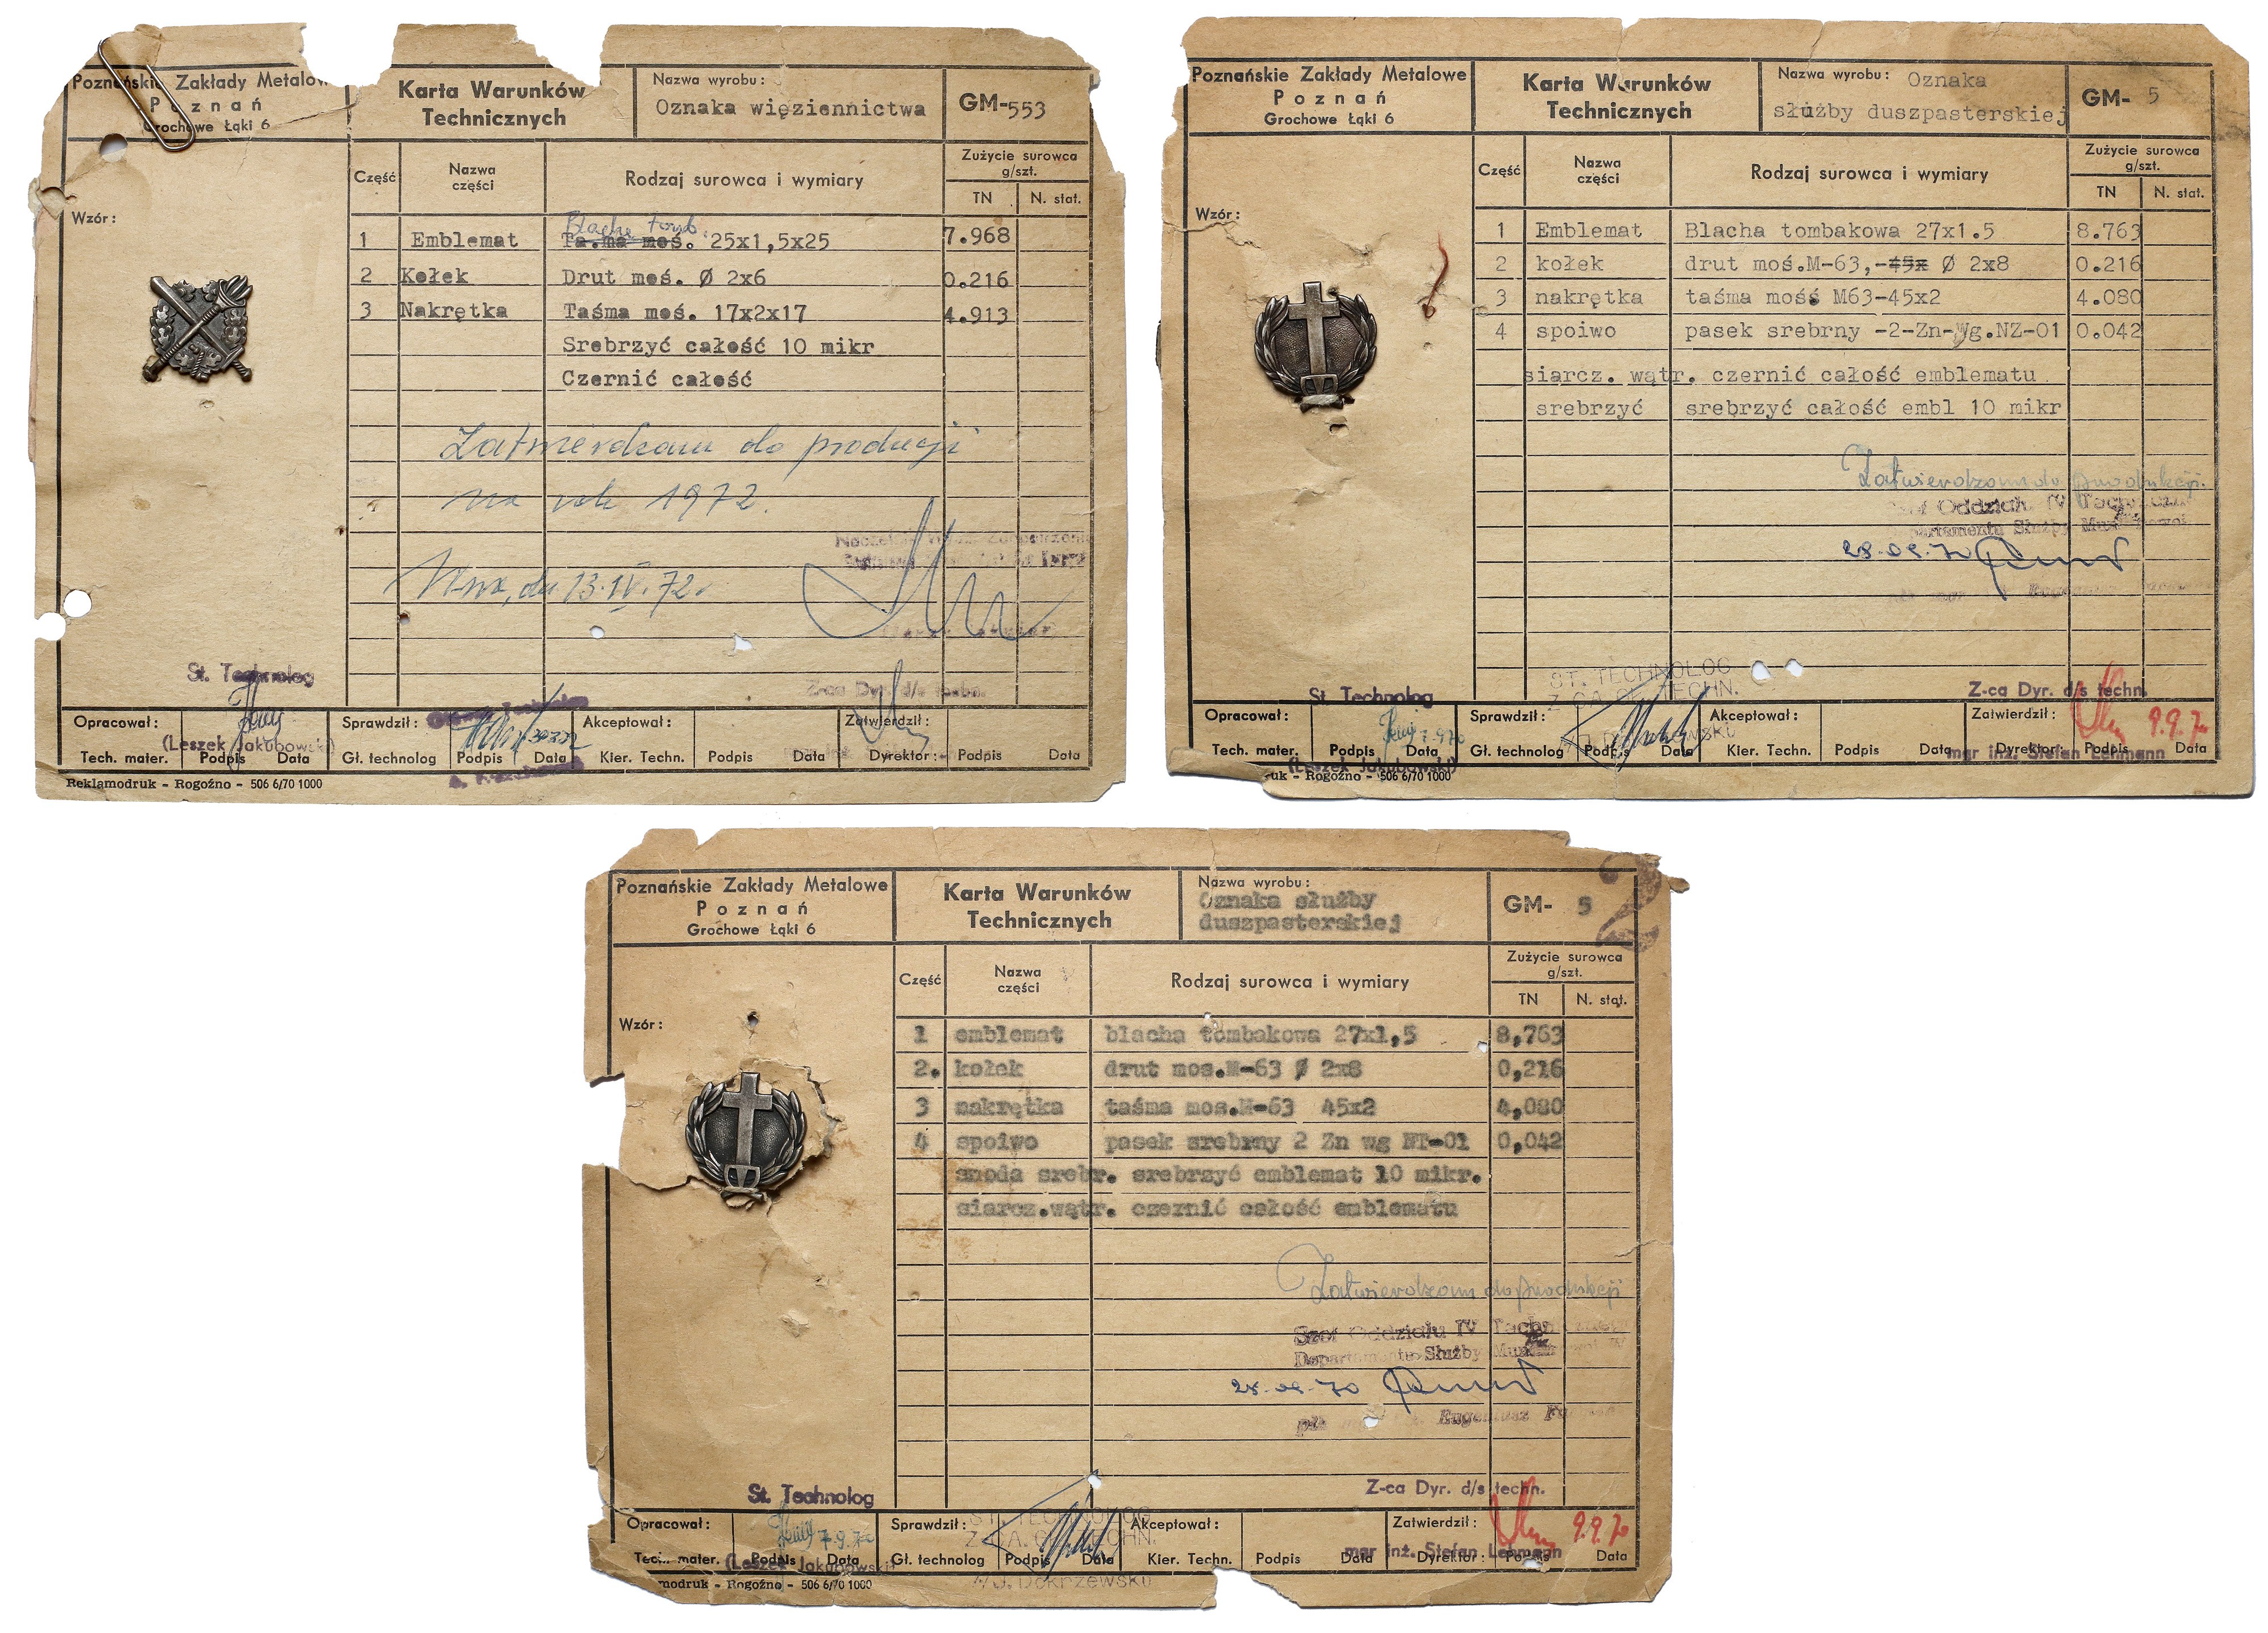 Poznańskie Zakłady Metalow
Poznań
Grochowe Łąki 6
Karta Warunków
Technicznych
Nazwa wyrobu:
Oznaka więziennictwa
GM-553
Wzór:
Część Nazwa części Rodzaj surowca i wymiary Zużycie surowca g/szt. TN N. stat.
Blacha tomb.
1 Emblemat Ta.ma moś. 25x1,5x25 7.968
2 Kołek Drut moś. Ø 2x6 0.216
3 Nakrętka Taśma moś. 17x2x17 4.913
Srebrzyć całość 10 mikr
Czernić całość
Zatwierdzam do producji
na rok 1972.
W-wa, dn 13.IV.72r
St. Technolog
Z-ca Dyr. d/s techn.
Opracował: Sprawdził: Akceptował: Zatwierdził:
(Leszek Jakubowski)
Tech. mater. Podpis Data Gł. technolog Podpis Data Kier. Techn. Podpis Data Dyrektor: Podpis Data
Reklamodruk - Rogoźno - 506 6/70 1000
Poznańskie Zakłady Metalowe
Poznań
Grochowe Łąki 6
Karta Warunków
Technicznych
Nazwa wyrobu: Oznaka
służby duszpasterskiej
GM- 5
Wzór:
Część Nazwa części Rodzaj surowca i wymiary Zużycie surowca g/szt. TN N. stat.
1 Emblemat Blacha tombakowa 27x1.5 8.763
2 kołek drut moś.M-63,-45x Ø 2x8 0.216
3 nakrętka taśma mośś M63-45x2 4.080
4 spoiwo pasek srebrny -2-Zn-Wg.NZ-01 0.042
siarcz. wątr. czernić całość emblematu
srebrzyć srebrzyć całość embl 10 mikr
Zatwierdzam do produkcji.
Szef Oddziału IV
Departamentu Służby
28.08.70
ST. TECHNOLOG
Z-CA GŁ. TECHN.
St. Technolog
Z-ca Dyr. d/s techn.
Opracował: Sprawdził: Akceptował: Zatwierdził:
7.9.70 9.9.70
Tech. mater. Podpis Data Gł. technolog Podpis Data Kier. Techn. Podpis Data Dyrektor: Podpis Data
mgr inż. Stefan Lehmann
(Leszek Jakubowski)
uk - Rogoźno - 506 6/70 1000
Poznańskie Zakłady Metalowe
Poznań
Grochowe Łąki 6
Karta Warunków
Technicznych
Nazwa wyrobu:
Oznaka służby
duszpasterskiej
GM- 5
2
Wzór:
Część Nazwa części Rodzaj surowca i wymiary Zużycie surowca g/szt. TN N. stat.
1 emblemat blacha tombakowa 27x1,5 8,763
2. kołek drut mos.M-63 Ø 2x8 0,216
3 nakrętka taśma mos.M-63 45x2 4,080
4 spoiwo pasek srebrny 2 Zn wg NT-01 0,042
anoda srebr. srebrzyć emblemat 10 mikr.
siarcz.wątr. czernić całość emblematu
Zatwierdzam do produkcji
Szef Oddziału IV Techn
Departamentu Służby
28.08.70
płk Eugeniusz
St. Technolog
Z-ca Dyr. d/s techn.
ST. TECHNOLOG
Z-CA GŁ. TECHN.
Opracował: Sprawdził: Akceptował: Zatwierdził:
7.9.70 9.9.70
mgr inż. Stefan Lehmann
Tech. mater. Podpis Data Gł. technolog Podpis Data Kier. Techn. Podpis Data Dyrektor: Podpis Data
(Leszek Jakubowski)
modruk - Rogoźno - 506 6/70 1000